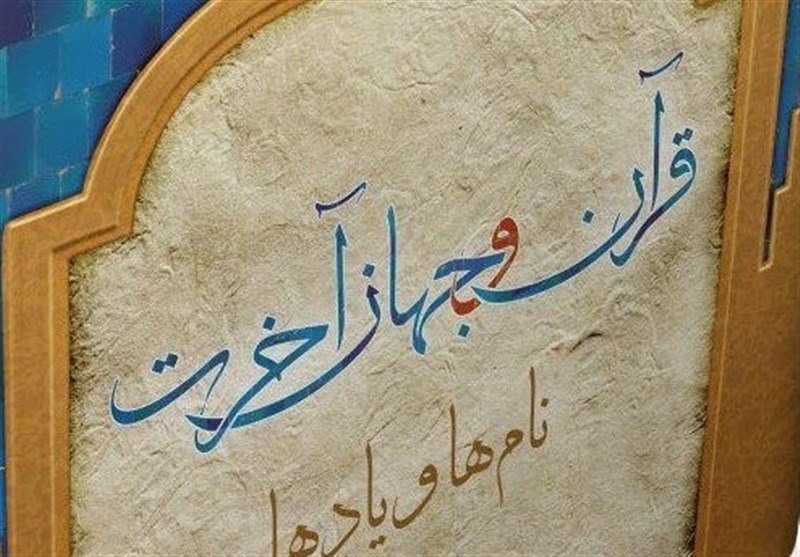 قرآن و جهان آخرت
نام‌ها و یادها